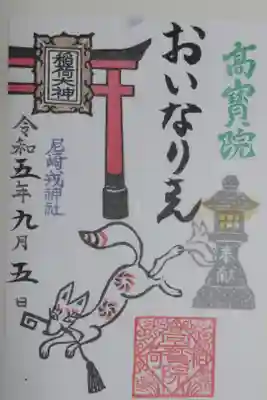 高寶院
おいなりさん
稲荷大神
奉献
尼崎戎神社
令和五年九月五日